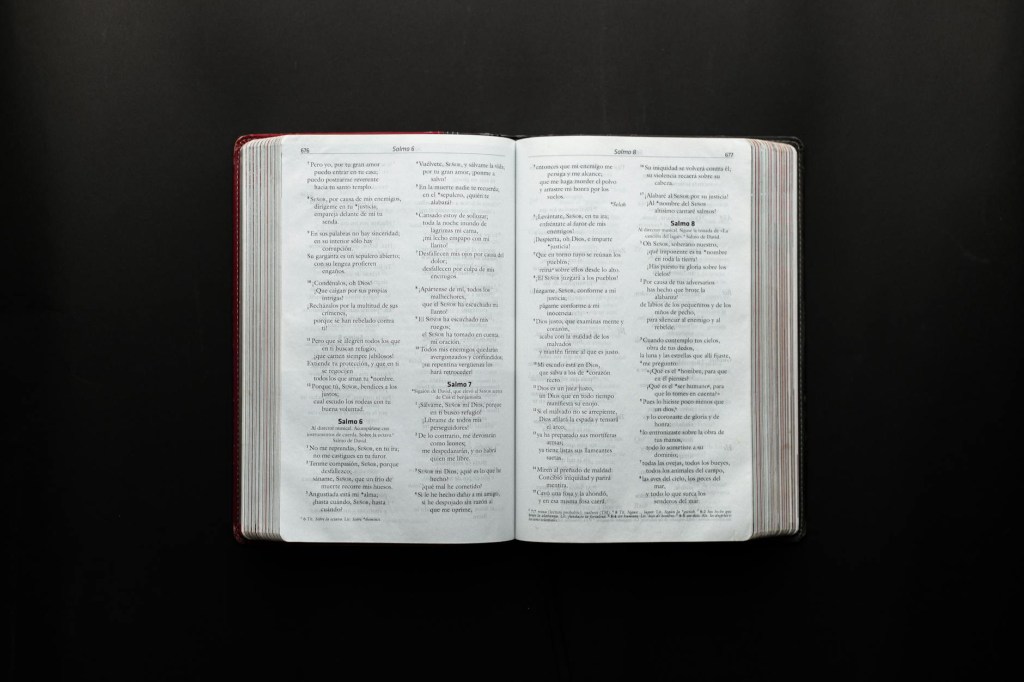 676
Salmo 6
⁷ Pero yo, por tu gran amor
puedo entrar en tu casa;
puedo postrarme reverente
hacia tu santo templo.
⁸ SEÑOR, por causa de mis enemigos,
dirígeme en tu *justicia;
empareja delante de mí tu
senda.
⁹ En sus palabras no hay sinceridad;
en su interior sólo hay
corrupción.
Su garganta es un sepulcro abierto;
con su lengua profieren
engaños.
¹⁰ ¡Condénalos, oh Dios!
¡Que caigan por sus propias
intrigas!
¡Recházalos por la multitud de sus
crímenes,
porque se han rebelado contra
ti!
¹¹ Pero que se alegren todos los que
en ti buscan refugio;
¡que canten siempre jubilosos!
Extiende tu protección, y que en ti
se regocijen
todos los que aman tu *nombre.
¹² Porque tú, SEÑOR, bendices a los
justos;
cual escudo los rodeas con tu
buena voluntad.
Salmo 6
Al director musical. Acompáñese con
instrumentos de cuerda. Sobre la octava.
Salmo de David.
¹ No me reprendas, SEÑOR, en tu ira;
no me castigues en tu furor.
² Tenme compasión, SEÑOR, porque
desfallezco;
sáname, SEÑOR, que un frío de
muerte recorre mis huesos.
³ Angustiada está mi *alma;
¿hasta cuándo, SEÑOR, hasta
cuándo?
⁴ Vuélvete, SEÑOR, y sálvame la vida;
por tu gran amor, ¡ponme a
salvo!
⁵ En la muerte nadie te recuerda;
en el *sepulcro, ¿quién te
alabará?
⁶ Cansado estoy de sollozar;
toda la noche inundo de
lágrimas mi cama,
¡mi lecho empapo con mi
llanto!
⁷ Desfallecen mis ojos por causa del
dolor;
desfallecen por culpa de mis
enemigos.
⁸ ¡Apártense de mí, todos los
malhechores,
que el SEÑOR ha escuchado mi
llanto!
⁹ El SEÑOR ha escuchado mis
ruegos;
el SEÑOR ha tomado en cuenta
mi oración.
¹⁰ Todos mis enemigos quedarán
avergonzados y confundidos;
¡su repentina vergüenza los
hará retroceder!
Salmo 7
¹ ¡Sálvame, SEÑOR mi Dios, porque
en ti busco refugio!
¡Líbrame de todos mis
perseguidores!
² De lo contrario, me devorarán
como leones;
me despedazarán, y no habrá
quien me libre.
³ SEÑOR mi Dios, ¿qué es lo que he
hecho?
¿qué mal he cometido?
⁴ Si le he hecho daño a mi amigo,
si he despojado sin razón al
que me oprime,
Salmo 8
677
⁵ entonces que mi enemigo me
persiga y me alcance;
que me haga morder el polvo
y arrastre mi honra por los
suelos.
*Selah
⁶ ¡Levántate, SEÑOR, en tu ira;
enfréntate al furor de mis
enemigos!
¡Despierta, oh Dios, e imparte
*justicia!
⁷ Que en torno tuyo se reúnan los
pueblos;
reina sobre ellos desde lo alto.
⁸ ¡El SEÑOR juzgará a los pueblos!
Júzgame, SEÑOR, conforme a mi
justicia;
págame conforme a mi
inocencia.
⁹ Dios justo, que examinas mente y
corazón,
acaba con la maldad de los
malvados
y mantén firme al que es justo.
¹⁰ Mi escudo está en Dios,
que salva a los de *corazón
recto.
¹¹ Dios es un juez justo,
un Dios que en todo tiempo
manifiesta su enojo.
¹² Si el malvado no se arrepiente,
Dios afilará la espada y tensará
el arco;
¹³ ya ha preparado sus mortíferas
armas;
ya tiene listas sus llameantes
saetas.
¹⁴ Miren al preñado de maldad:
Concibió iniquidad y parirá
mentira.
¹⁵ Cavó una fosa y la ahondó,
y en esa misma fosa caerá.
¹⁶ Su iniquidad se volverá contra él;
su violencia recaerá sobre su
cabeza.
¹⁷ ¡Alabaré al SEÑOR por su justicia!
¡Al *nombre del SEÑOR
altísimo cantaré salmos!
Salmo 8
¹ Oh SEÑOR, soberano nuestro,
¡qué imponente es tu *nombre
en toda la tierra!
¡Has puesto tu gloria sobre los
cielos!
² Por causa de tus adversarios
has hecho que brote la
alabanza
de labios de los pequeñitos y de los
niños de pecho,
para silenciar al enemigo y al
rebelde.
³ Cuando contemplo tus cielos,
obra de tus dedos,
la luna y las estrellas que allí fijaste,
⁴ me pregunto:
«¿Qué es el *hombre, para que
en él pienses?
¿Qué es el *ser humano, para
que lo tomes en cuenta?»
⁵ Pues lo hiciste poco menos que
un dios,
y lo coronaste de gloria y de
honra:
⁶ lo entronizaste sobre la obra de
tus manos,
todo lo sometiste a su
dominio;
⁷ todas las ovejas, todos los bueyes,
todos los animales del campo,
⁸ las aves del cielo, los peces del
mar,
y todo lo que surca los
senderos del mar.